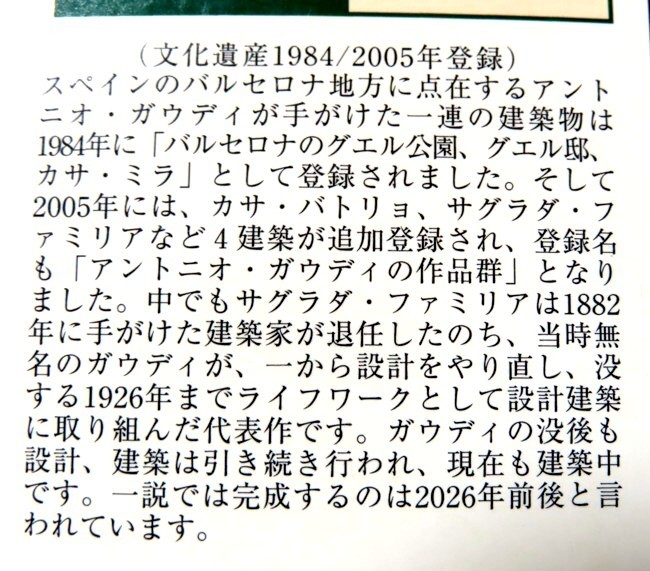 （文化遺産1984/2005年登録）
スペインのバルセロナ地方に点在するアント
ニオ・ガウディが手がけた一連の建築物は
1984年に「バルセロナのグエル公園、グエル邸、
カサ・ミラ」として登録されました。そして
2005年には、カサ・バトリョ、サグラダ・フ
ァミリアなど４建築が追加登録され、登録名
も「アントニオ・ガウディの作品群」となり
ました。中でもサグラダ・ファミリアは1882
年に手がけた建築家が退任したのち、当時無
名のガウディが、一から設計をやり直し、没
する1926年までライフワークとして設計建築
に取り組んだ代表作です。ガウディの没後も
設計、建築は引き続き行われ、現在も建築中
です。一説では完成するのは2026年前後と言
われています。